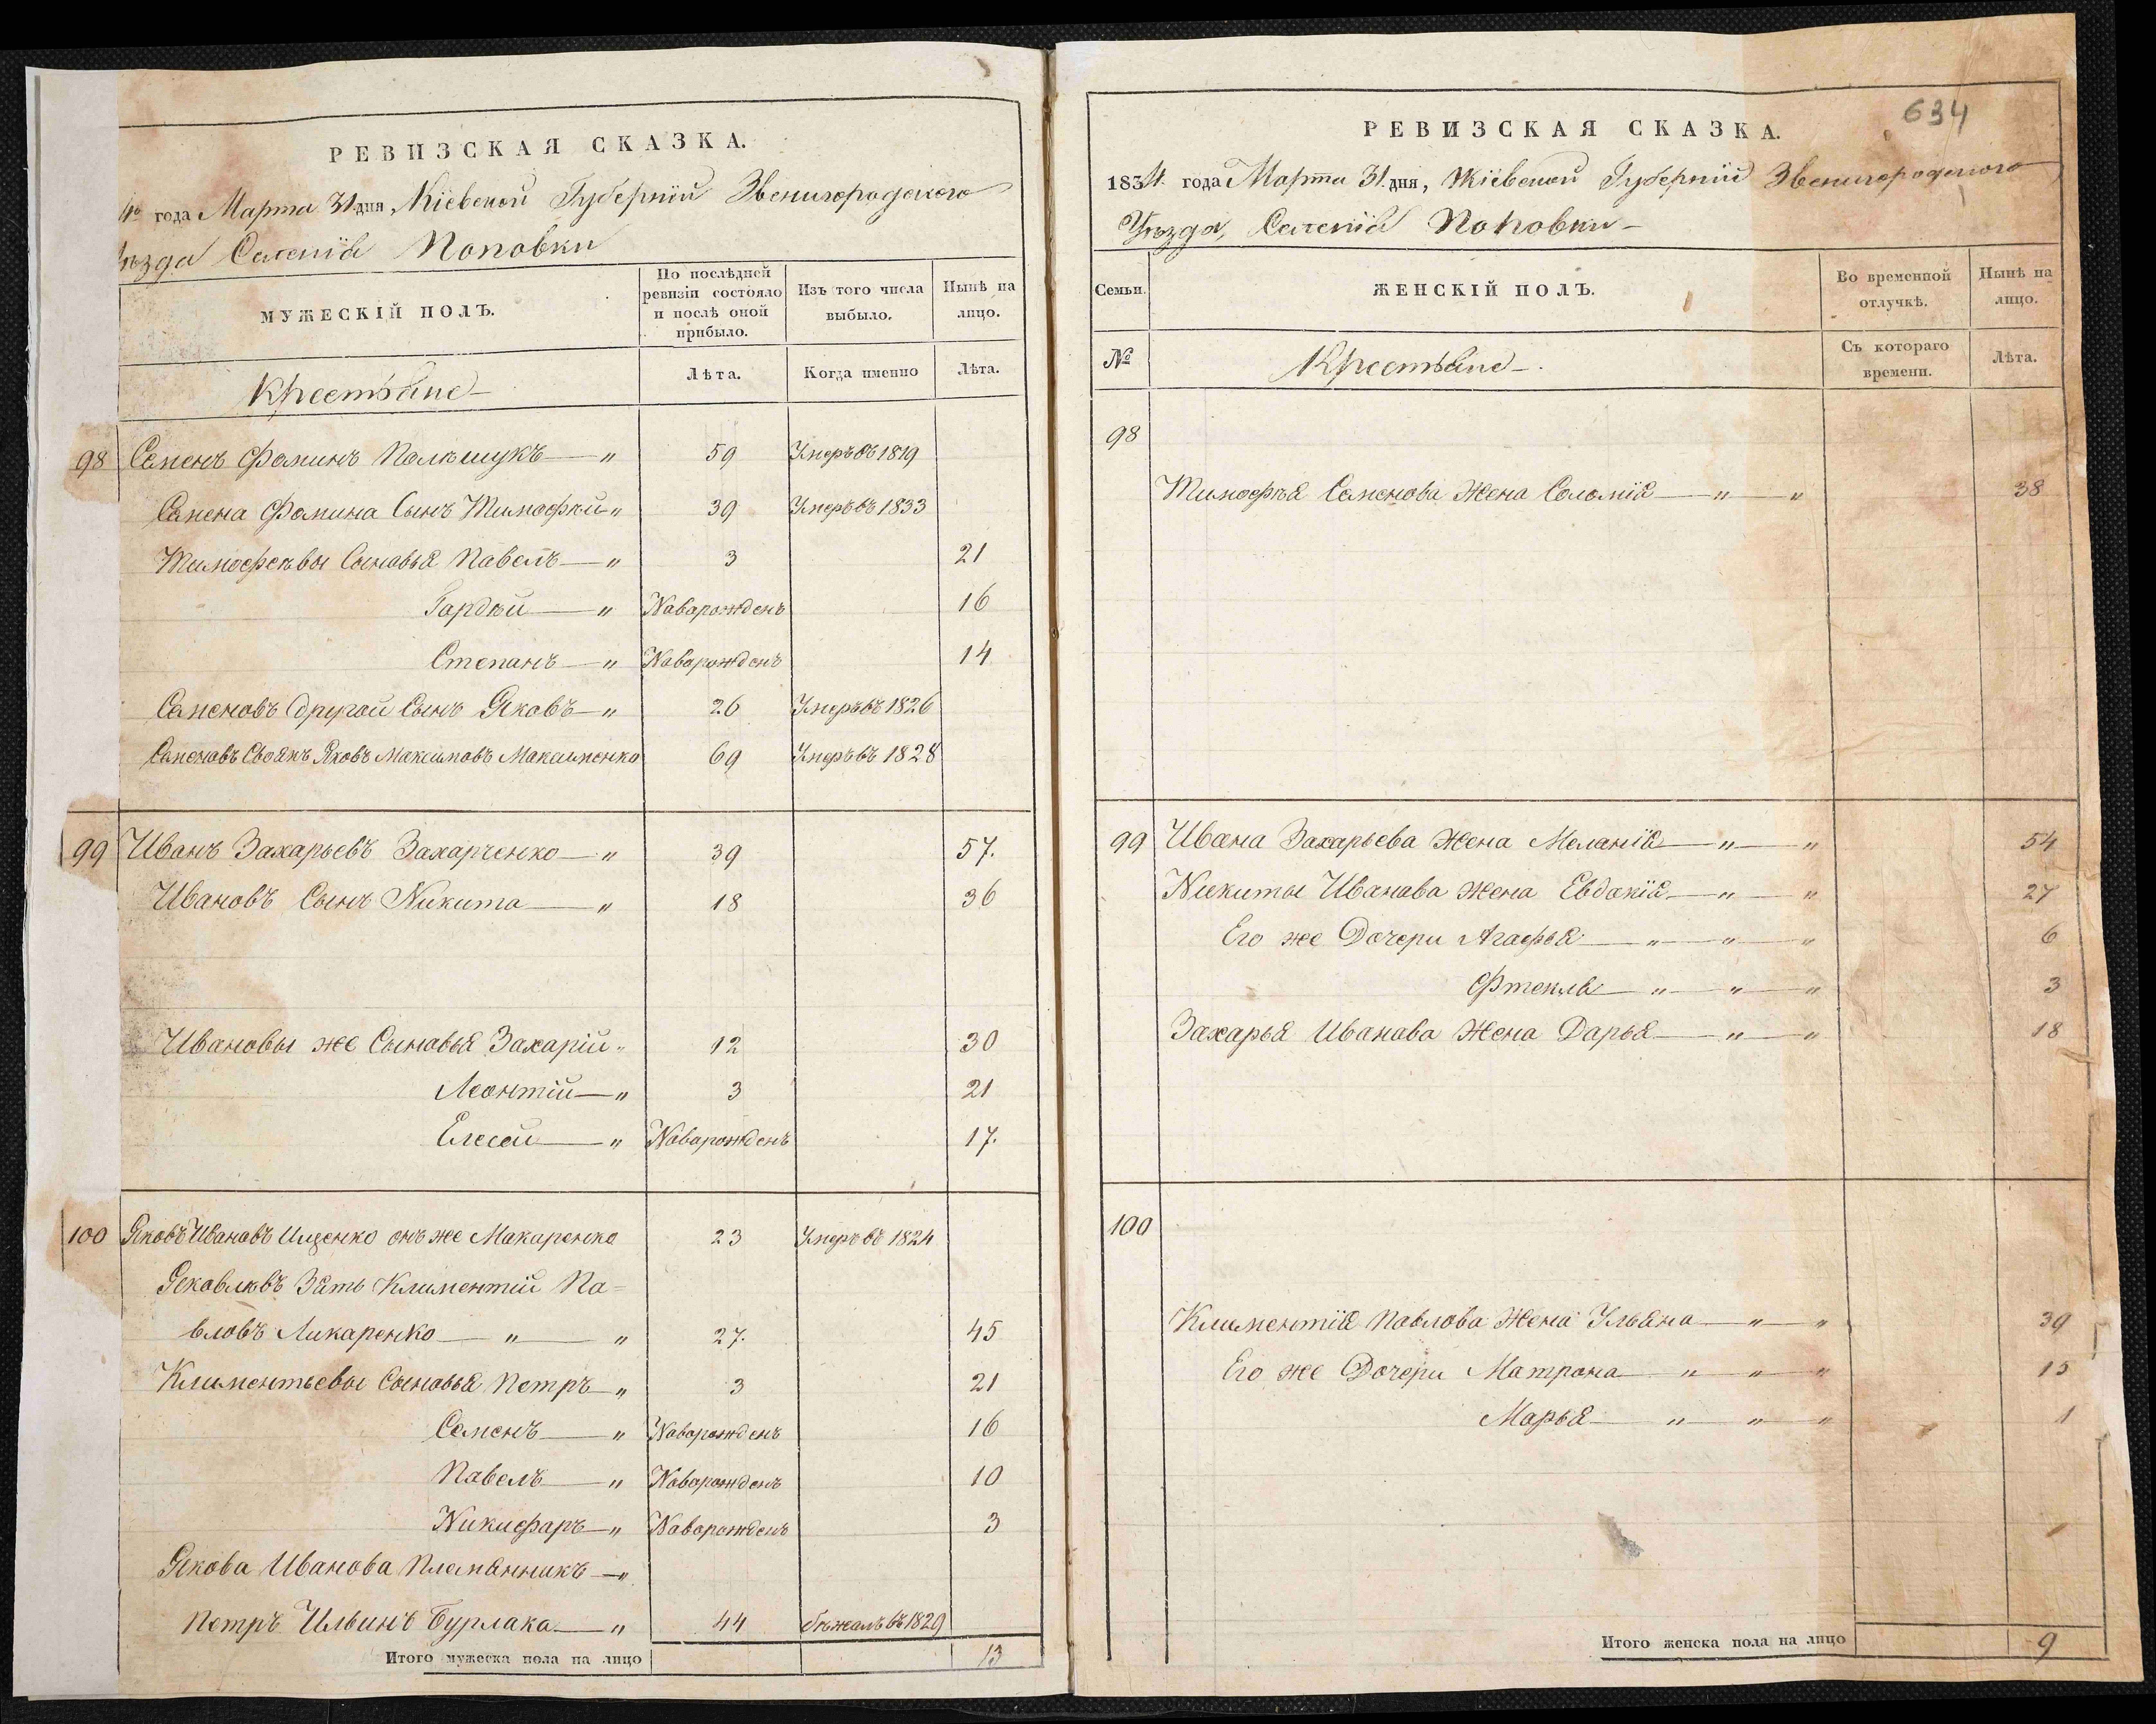 РЕВИЗСКАЯ СКАЗКА.
4го года Марта 31 дня, Кіевской Губерніи Звенигородского
ѣзда Селенія Поповки
МУЖЕСКІЙ ПОЛЪ.
По послѣдней ревизіи состояло и послѣ оной прибыло.
Изъ того числа выбыло.
Нынѣ на лицо.
Крестьяне
Лѣта.
Когда именно
Лѣта.
98 Семенъ Фоминъ Полѣшукъ — „ 59 Умеръ въ 1819
Семена Фомина Сынъ Тимофѣй „ 39 Умеръ въ 1833
Тимофеѣвы Сыновья Павелъ — „ 3 21
Гордѣй — „ Новорожденъ 16
Степанъ — „ Новорожденъ 14
Семеновъ другой Сынъ Яковъ — „ 26 Умеръ въ 1826
Семеновъ Своякъ Яковъ Максимовъ Максименко 69 Умеръ въ 1828
99 Иванъ Захарьевъ Захарченко — „ 39 57.
Ивановъ Сынъ Никита — „ 18 36
Ивановы же Сыновья Захарій „ 12 30
Леонтій — „ 3 21
Елесей — „ Новорожденъ 17.
100 Яковъ Ивановъ Ищенко онъ же Макаренко 23 Умеръ въ 1824
Яковлѣвъ Зять Климентій Па=
вловъ Ликаренко — „ — „ 27. 45
Климентьевы Сыновья Петръ „ 3 21
Семенъ — „ Новорожденъ 16
Павелъ — „ Новорожденъ 10
Никифоръ — „ Новорожденъ 3
Якова Иванова Племянникъ — „
Петръ Ильинъ Бурлака — „ 44 бѣжалъ въ 1829
Итого мужеска пола на лицо 13
634
РЕВИЗСКАЯ СКАЗКА.
1834 года Марта 31 дня, Кіевской Губерніи Звенигородского
Уѣзда, Селенія Поповки —
Семьи.
ЖЕНСКІЙ ПОЛЪ.
Во временной отлучкѣ.
Нынѣ на лицо.
№
Крестьяне — .
Съ котораго времени.
Лѣта.
98
Тимофѣя Семенова Жена Соломія — „ — „ 38
99 Ивана Захарьева Жена Меланія — „ — „ 54
Никиты Иванова Жена Евдокія — „ — „ 27
Его же Дочери Агафья — „ — „ — „ 6
Фтекла — „ — „ — „ 3
Захарья Иванова Жена Дарья — „ — „ 18
100
Климентія Павлова Жена Ульяна — „ — „ 39
Его же Дочери Матрона — „ — „ — „ 15
Марья — „ — „ — „ 1
Итого женска пола на лицо 9